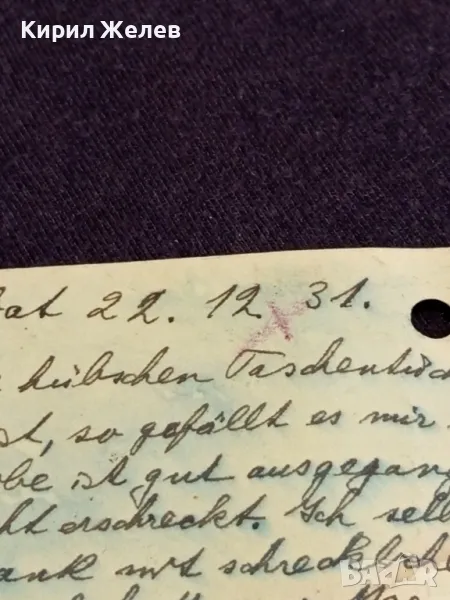 Кирил Желев
22. 12. 31.
hübschen Taschentüch
st, so gefällt es mir
obe ist gut ausgegang
ht erschreckt. Ich sell
ank mit schreckliche
bazar